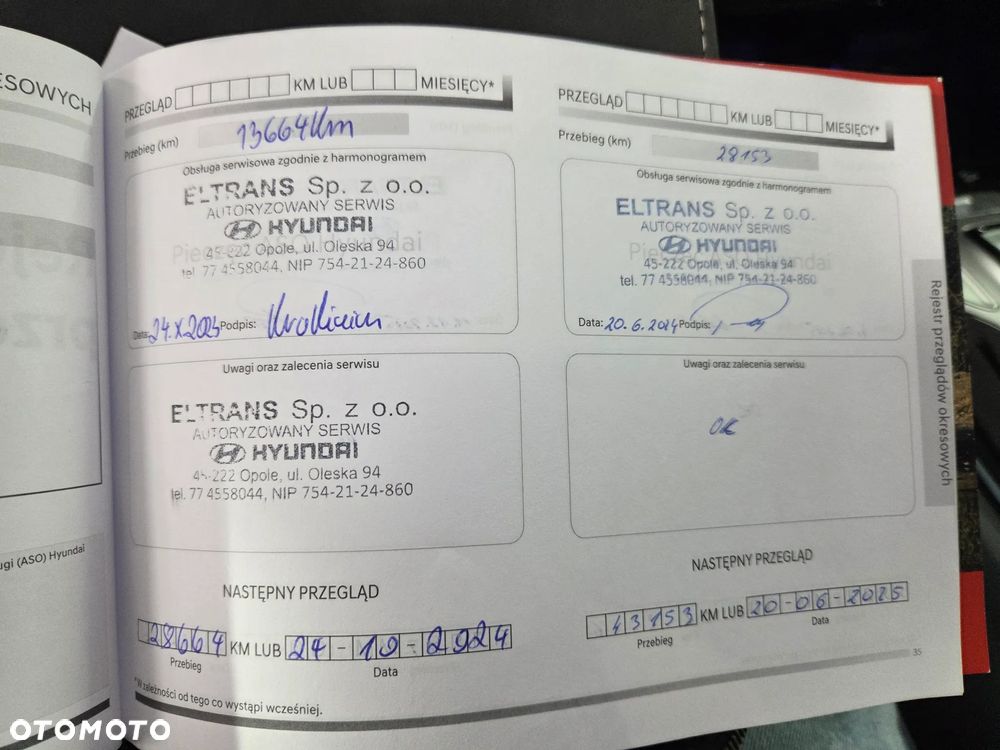 ESOWYCH
ugi (ASO) Hyundai
PRZEGLĄD KM LUB MIESIĘCY*
Przebieg (km) 13664km
Obsługa serwisowa zgodnie z harmonogramem
ELTRANS Sp. z o.o.
AUTORYZOWANY SERWIS
HYUNDAI
45-222 Opole, ul. Oleska 94
tel. 77 4558044, NIP 754-21-24-860
Data: 24.X.2023 Podpis:
Uwagi oraz zalecenia serwisu
ELTRANS Sp. z o.o.
AUTORYZOWANY SERWIS
HYUNDAI
45-222 Opole, ul. Oleska 94
tel. 77 4558044, NIP 754-21-24-860
NASTĘPNY PRZEGLĄD
28664 KM LUB 24-10-2024
Przebieg Data
*W zależności od tego co wystąpi wcześniej.
PRZEGLĄD KM LUB MIESIĘCY*
Przebieg (km) 28153
Obsługa serwisowa zgodnie z harmonogramem
ELTRANS Sp. z o.o.
AUTORYZOWANY SERWIS
HYUNDAI
45-222 Opole, ul. Oleska 94
tel. 77 4558044, NIP 754-21-24-860
Data: 20.6.2024 Podpis:
Uwagi oraz zalecenia serwisu
OK
NASTĘPNY PRZEGLĄD
43153 KM LUB 20-06-2025
Przebieg Data
35
Rejestr przeglądów okresowych
OTOMOTO